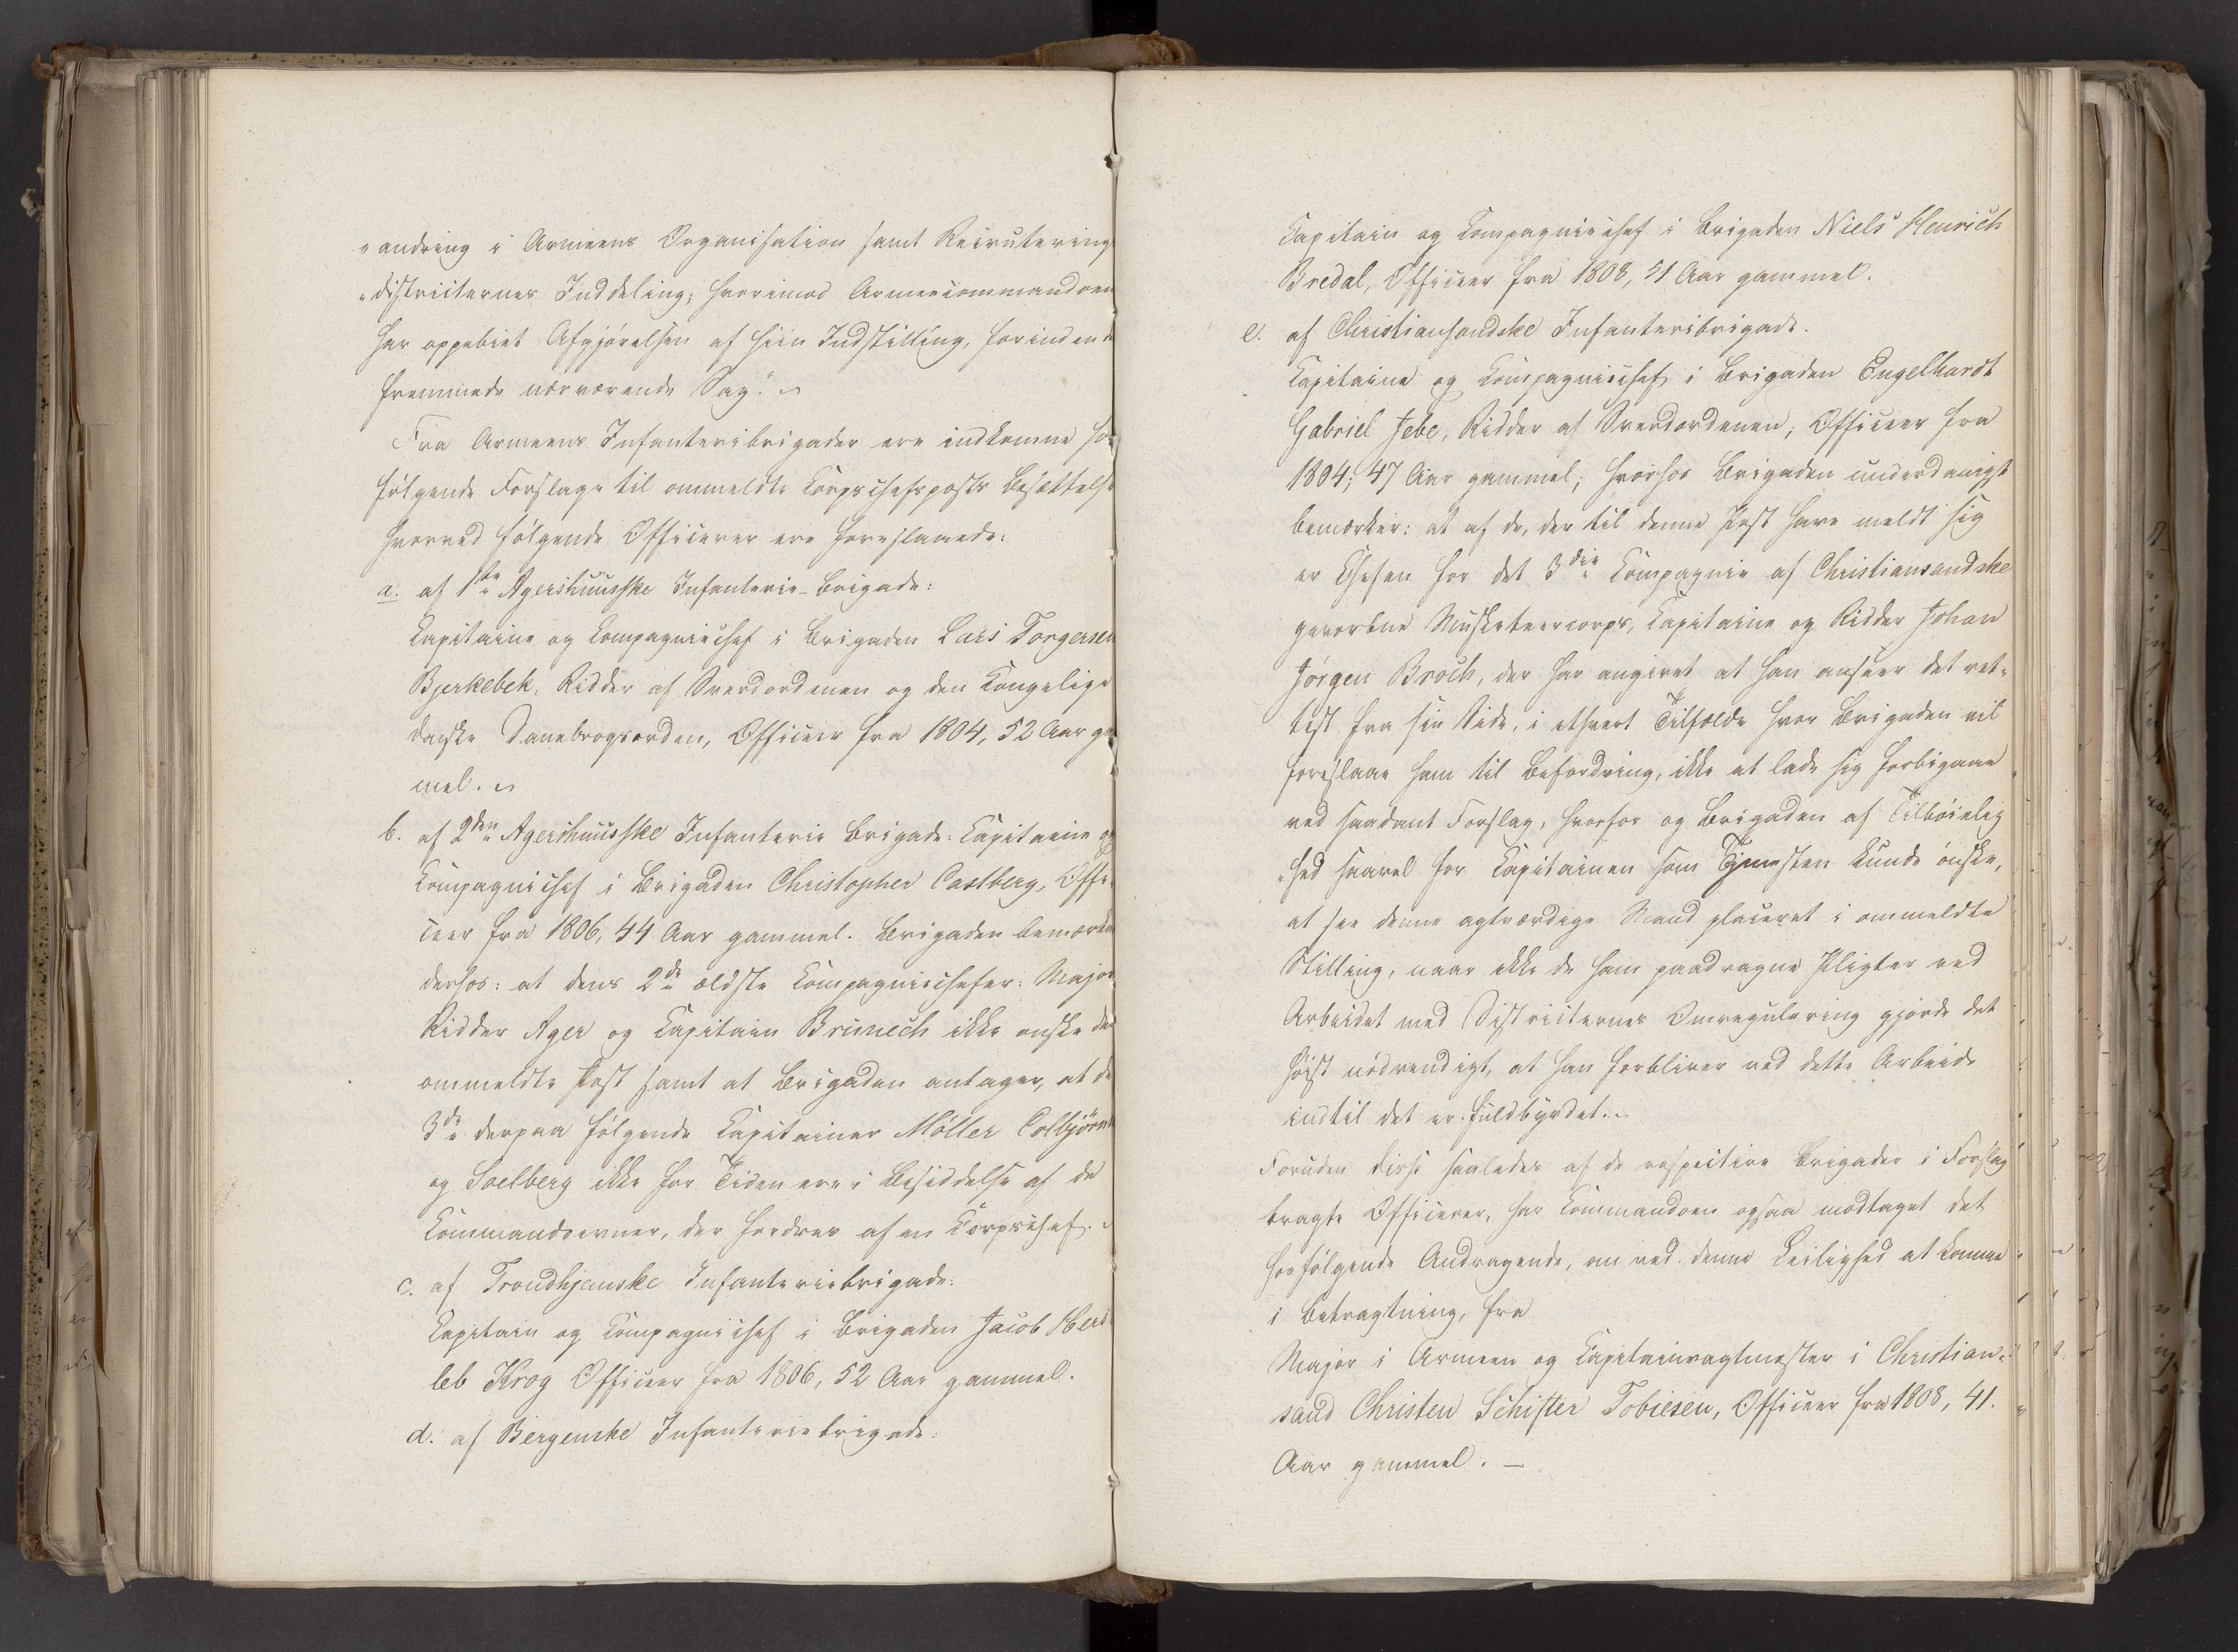 „andring i Armeens Organisation samt Recruterings
„districternes Inddeling; hvorimod Armeecommandoen
har oppebiet Afgjørelsen af hiin Indstilling, forinden de
fremmede nærværende Sag." 
Fra Armeens Infanteribrigader ere indkomne hos
følgende Forslage til ommeldte Korpschefsposts Besættelse
hvorved følgende Officerer ere foreslaaede:
a. af 1ste Agershuusske Infanterie-Brigade:
Kapitaine og Kompagniechef i Brigaden Lars Torgersen
Bjerkebek, Ridder af Sverdordenen og den Kongelige
danske Dannebrogsorden, Officeer fra 1804, 52 Aar ga
mel.
b. af 2den Agershuusske Infanterie Brigade: Kapitaine og
Kompagnichef i Brigaden Christopher Castberg, Offi-
ceer fra 1806, 44 Aar gammel. Brigaden bemærker
derhos: at dens 2de ældste Kompagniechefer: Major
Ridder Ager og Kapitain Brunech ikke ønske den
ommeldte Post samt at Brigaden antager, at de
3de derpaa følgende Kapitainer Möller Colbjørns
og Soelberg ikke for Tiden ere i Besiddelse af de
Kommandoevner, der fordres af en Korpschef.
c. af Trondhjemske Infanteriebrigade:
Kapitain og Kompagnichef i Brigaden Jacob Hers
leb Krog Officeer fra 1806, 52 Aar gammel.
d. af Bergenske Infanteriebrigade:
Kapitain og Kompagniechef i Brigaden Niels Henrich
Bredal, Officeer fra 1808, 51 Aar gammel.
e. af Christiansandske Infanteribrigade.
Kapitaine og Kompagniechef i Brigaden Engelhardt
Gabriel Jebe, Ridder af Sverdordenen, Officeer fra
1804; 47 Aar gammel; hvorhos Brigaden underdanigst
bemærker: at af de, der til denne Post have meldt sig
er Chefen for det 3die Kompagnie af Christiansandske
gevorbne Musketeercorps, Kapitaine og Ridder Johan
Jørgen Broch, der har angivet at han anseer det ret-
test fra sin Side, i ethvert Tilfælde hvor Brigaden vil
foreslaae ham til Befordring, ikke at lade sig forbigaae
ved saadant Forslag, hvorfor og Brigaden af Tilbøielig
„hed saavel for Kapitainen som Tjenesten kunde ønske,
at see denne agtværdige Mand placeret i ommeldte
Stilling, naar ikke de ham paadragne Pligter ved
Arbeidet med Districternes Omregulering gjorde det
høist nødvendigt, at han forbliver ved dette Arbeide
indtil det er fuldbyrdet.
Foruden disse saaledes af de respective Brigader i Forslag
bragte Officerer, har Kommandoen ogsaa modtaget det
hosfølgende Andragende, om ved denne Leilighed at komme
i Betragtning, fra
Major i Armeen og Kapitainvagtmester i Christian-
sand Christen Schifter Tobiesen, Officeer fra 1808, 41.
Aar gammel. —